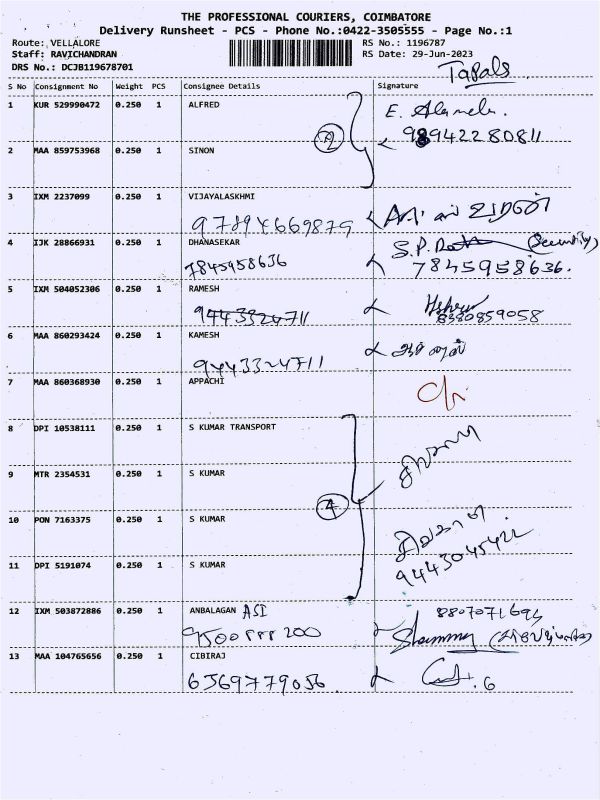 THE PROFESSIONAL COURIERS, COIMBATORE
Delivery Runsheet - PCS - Phone No.:0422-3505555 - Page No.:1
Route: VELLALORE RS No.: 1196787
Staff: RAVICHANDRAN RS Date: 29-Jun-2023
DRS No.: DCJB119678701
Tapals
S No Consignment No Weight PCS Consignee Details Signature
1 KUR 529990472 0.250 1 ALFRED
2 MAA 859753968 0.250 1 SINON
3 IXM 2237099 0.250 1 VIJAYALASKHMI
97894669879
4 IJK 28866931 0.250 1 DHANASEKAR S.P. (Security)
7845958636 7845958636.
5 IXM 504052306 0.250 1 RAMESH
9443324711 8380859058
6 MAA 860293424 0.250 1 KAMESH
9443324711
7 MAA 860368930 0.250 1 APPACHI
8 DPI 10538111 0.250 1 S KUMAR TRANSPORT
9 MTR 2354531 0.250 1 S KUMAR
4
10 PON 7163375 0.250 1 S KUMAR
11 DPI 5191074 0.250 1 S KUMAR
9443045422
12 IXM 503872886 0.250 1 ANBALAGAN ASI
13 MAA 104765656 0.250 1 CIBIRAJ
6369779056